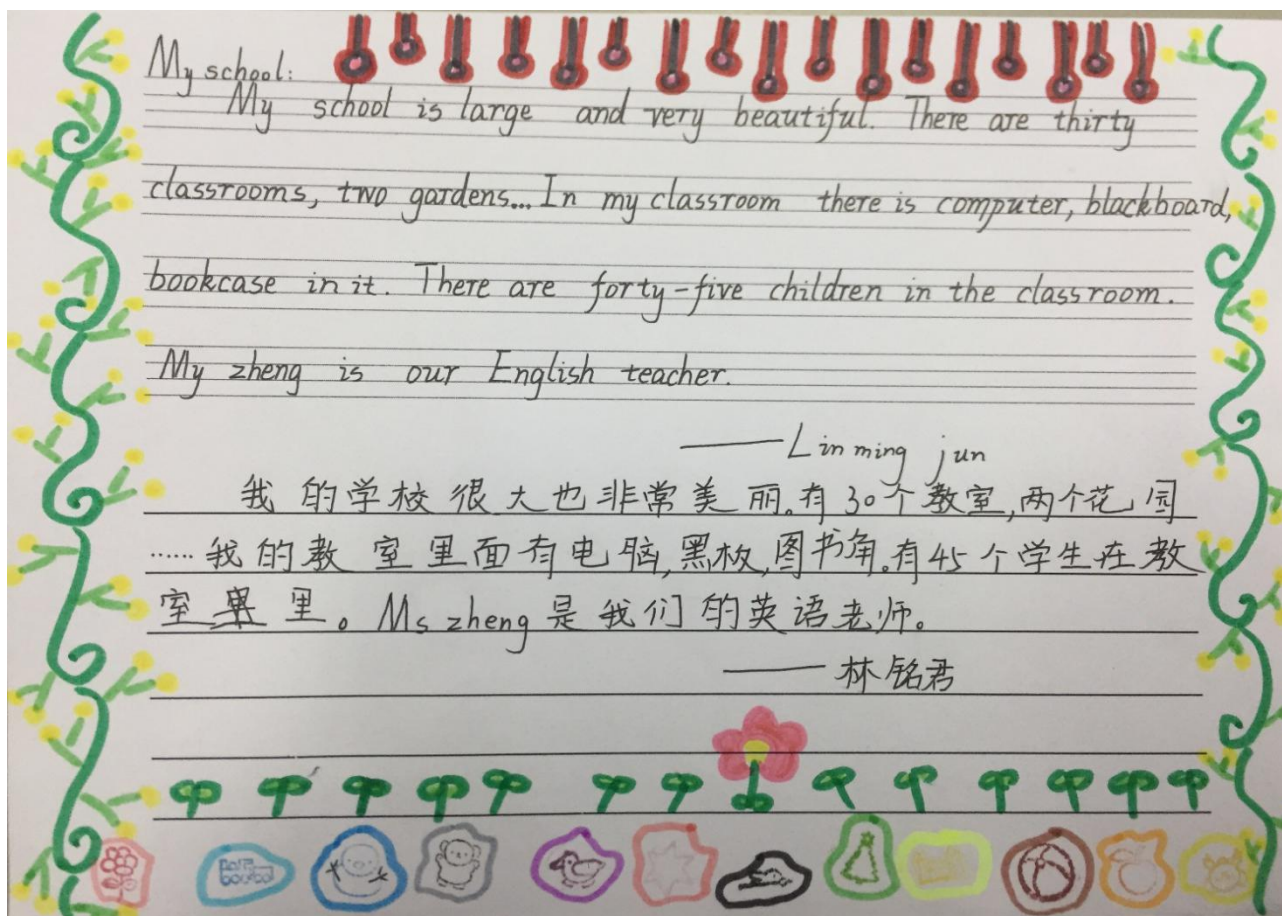 My school:
My school is large and very beautiful. There are thirty
classrooms, two gardens... In my classroom there is computer, blackboard,
bookcase in it. There are forty-five children in the classroom.
My zheng is our English teacher.
——Lin ming jun
我的学校很大也非常美丽。有30个教室,两个花园
……我的教室里面有电脑,黑板,图书角。有45个学生在教
室里。Ms zheng是我们的英语老师。
——林铭君